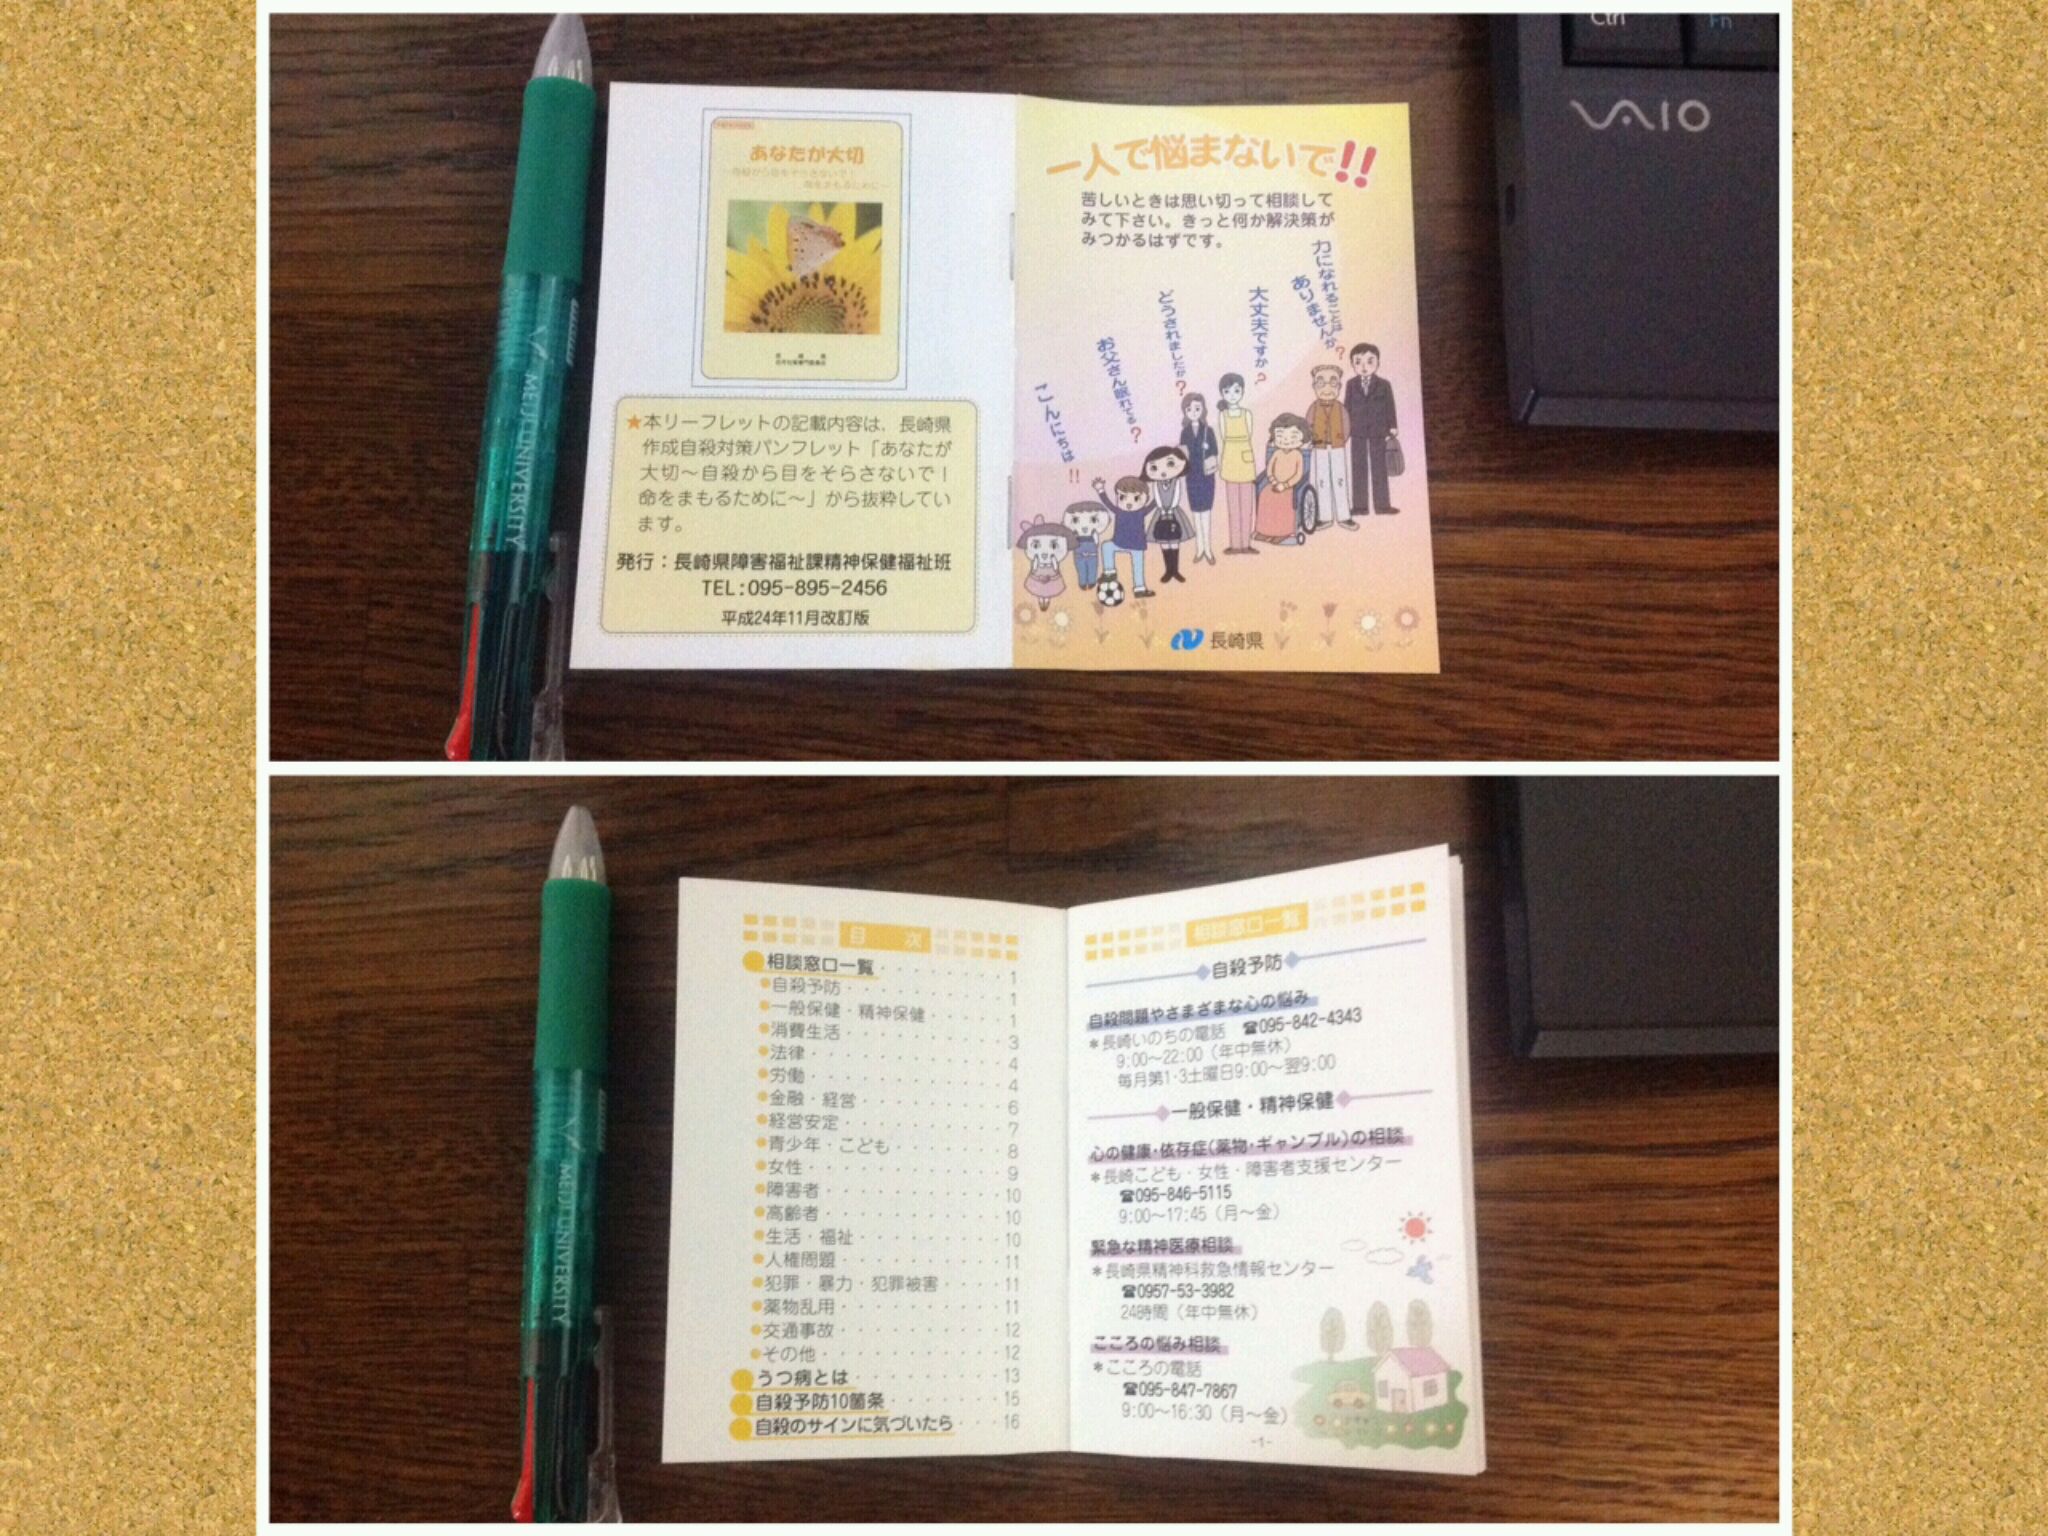 Ctrl
Fn
VAIO
MEIJI UNIVERSITY
あなたが大切
〜自殺から目をそらさないで!
命をまもるために〜
長崎県
★本リーフレットの記載内容は、長崎県
作成自殺対策パンフレット「あなたが
大切〜自殺から目をそらさないで!
命をまもるために〜」から抜粋してい
ます。
発行:長崎県障害福祉課精神保健福祉班
TEL:095-895-2456
平成24年11月改訂版
一人で悩まないで!!
苦しいときは思い切って相談して
みて下さい。きっと何か解決策が
みつかるはずです。
こんにちは!!
お父さん眠れてる?
どうされましたか?
大丈夫ですか?
力になれることは
ありませんか?
長崎県
MEIJI UNIVERSITY
目 次
相談窓口一覧 1
自殺予防 1
一般保健・精神保健 1
消費生活 3
法律 4
労働 4
金融・経営 6
経営安定 7
青少年・こども 8
女性 9
障害者 10
高齢者 10
生活・福祉 10
人権問題 11
犯罪・暴力・犯罪被害 11
薬物乱用 11
交通事故 12
その他 12
うつ病とは 13
自殺予防10箇条 15
自殺のサインに気づいたら 16
相談窓口一覧
自殺予防
自殺問題やさまざまな心の悩み
*長崎いのちの電話 ☎095-842-4343
9:00〜22:00(年中無休)
毎月第1・3土曜日9:00〜翌9:00
一般保健・精神保健
心の健康・依存症(薬物・ギャンブル)の相談
*長崎こども・女性・障害者支援センター
☎095-846-5115
9:00〜17:45(月〜金)
緊急な精神医療相談
*長崎県精神科救急情報センター
☎0957-53-3982
24時間(年中無休)
こころの悩み相談
*こころの電話
☎095-847-7867
9:00〜16:30(月〜金)
-1-